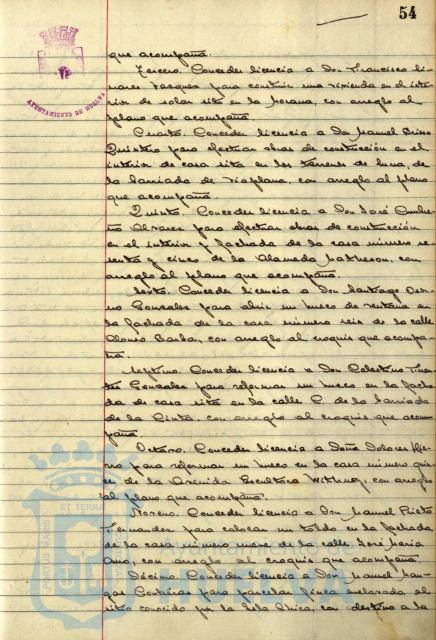 54
AYUNTAMIENTO DE HUELVA
que acompaña.
Tercero. Conceder licencia a Don Francisco Li-
nares Vasques para construir una vivienda en el inte-
rior de solar sito en la Morana, con arreglo al
plano que acompaña.
Cuarto. Conceder licencia a Don Manuel
Quintero para efectuar obras de construcción en el
interior de casa sita en los terrenos de
la barriada de Viaplana, con arreglo al plano
que acompaña.
Quinto. Conceder licencia a Don José
Alvares para efectuar obras de construcción
en el interior y fachada de la casa número se-
senta y cinco de la Alameda Matheson, con
arreglo al plano que acompaña.
Sexto. Conceder licencia a Don Santiago
Gonzales para abrir un hueco de ventana en
la fachada de la casa número seis de la calle
Alonso Barba, con arreglo al croquis que acompa-
ña.
Septimo. Conceder licencia a Don Celestino
Gonzales para reformar un hueco en la facha
da de casa sita en la calle C. de la barriada
de la Cinta, con arreglo al croquis que acom-
paña.
Octavo. Conceder licencia a Doña Dolores
para reformar un hueco en la casa número quin-
ce de la Avenida Escultora Withney, con arreglo
al plano que acompaña.
Noveno. Conceder licencia a Don Manuel Prieto
Fernandez para colocar un toldo en la fachada
de la casa número nueve de la calle José Maria
Amo, con arreglo al croquis que acompaña.
Décimo. Conceder licencia a Don Manuel
para parcelar finca enclavada al
sitio conocido por la Isla Chica, con destino a la
PORTUS MARIS
ET TERRAE
Ayuntamiento de